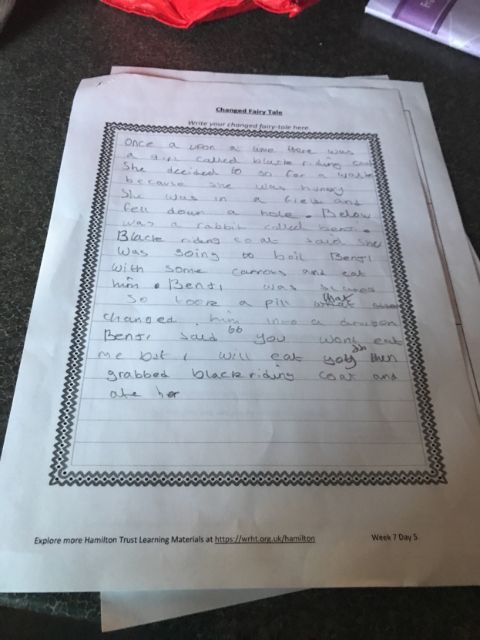 Changed Fairy Tale
Write your changed fairy-tale here
Once a upon a time there was
a girl called black riding coat
She decided to go for a walk
because she was hungry
She was in a field and
fell down a hole. Below
was a rabbit called benji.
Black riding coat said she
was going to boil Benji
with some carrots and eat
him. Benji was
So took a pill that
changed him into a dragon
Benji said “ you wont eat
me but I will eat you” then
grabbed black riding coat and
ate her
Explore more Hamilton Trust Learning Materials at https://wrht.org.uk/hamilton
Week 7 Day 5